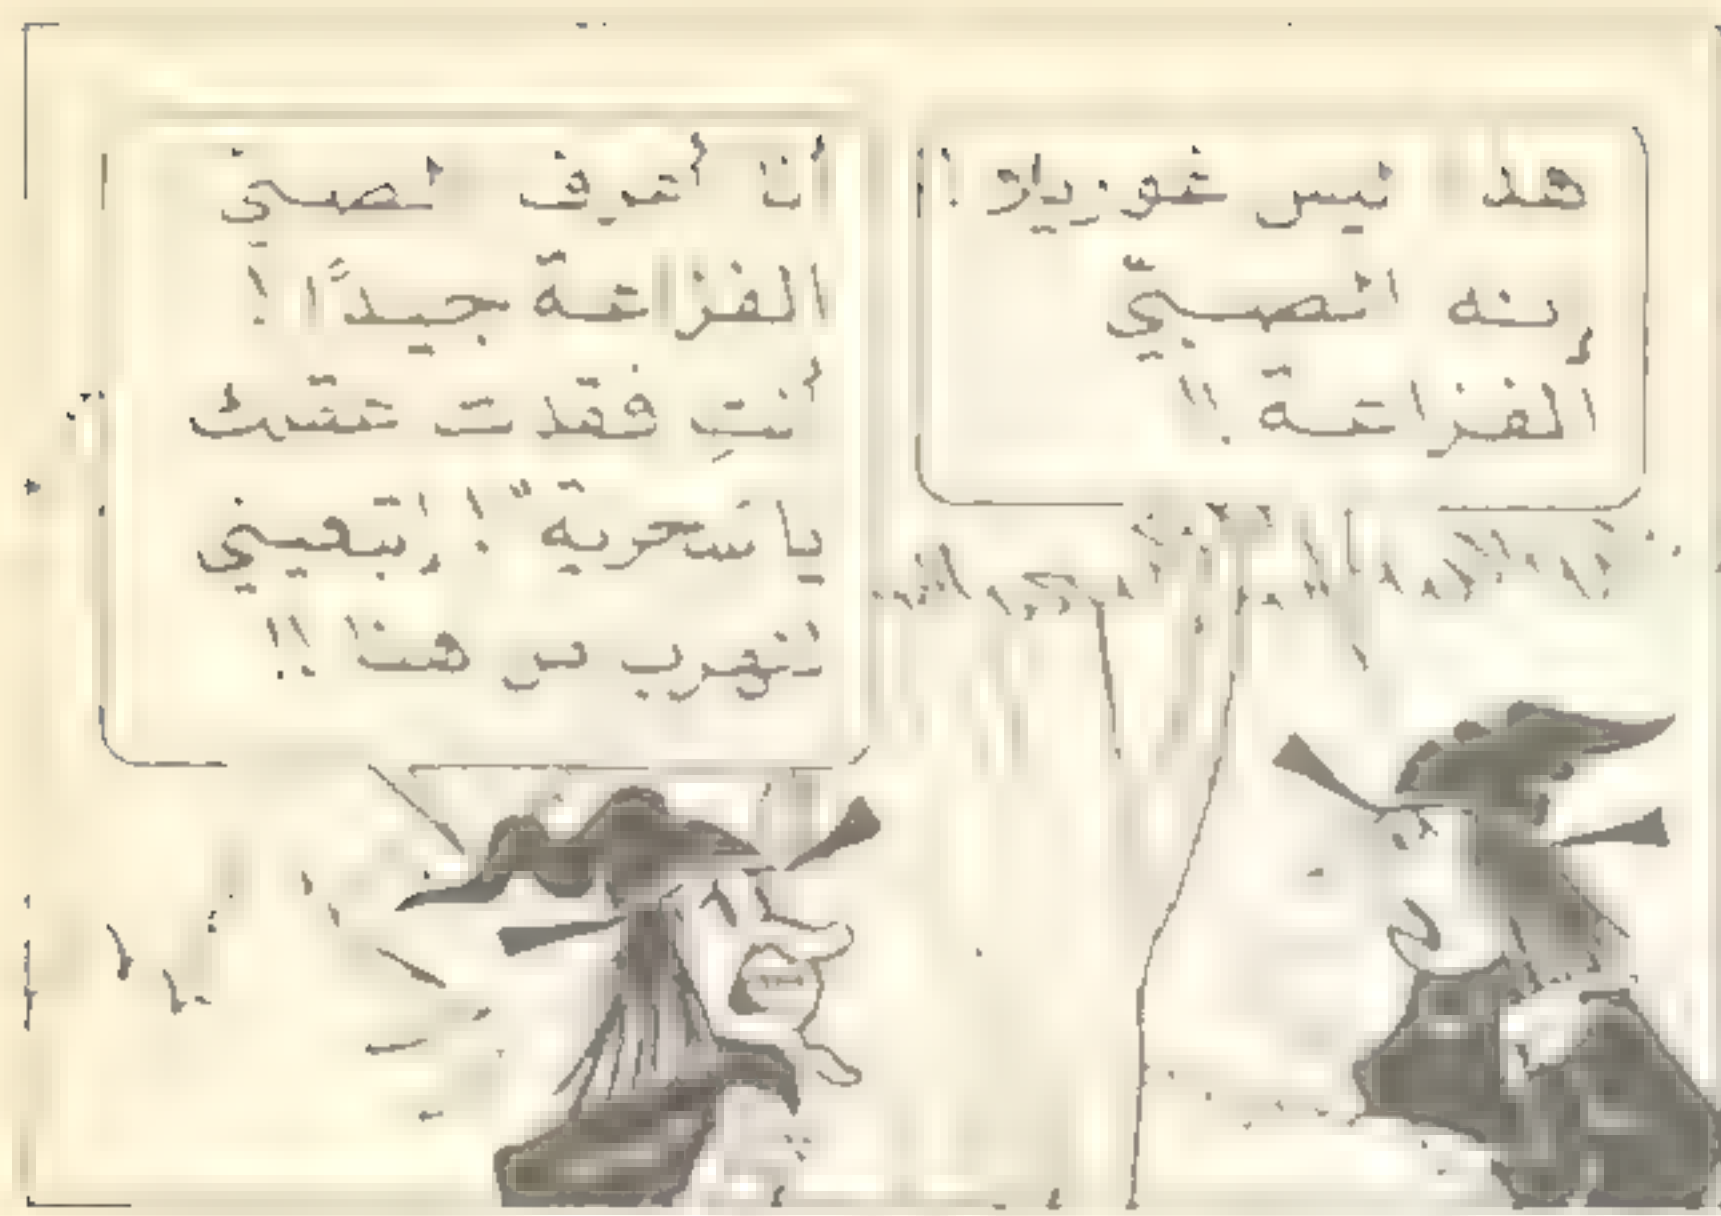 هذا ليس غوريلا !!
إنه الصبيّ
الفزاعة !!
أنا أعرف الصبيّ
الفزاعة جيدًا !
أنتِ فقدت عقلك
يا سحرية ! إتبعيني
لنهرب من هنا !!